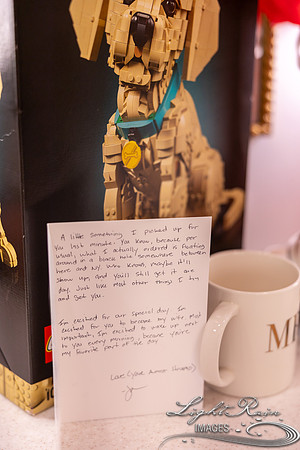 A little something I picked up for
you last minute. You know, because per
usual, what I actually ordered is floating
around in a black hole somewhere between
here and NJ. Who knows, maybe it'll
show up, and you'll still get it one
day. Just like most other things I try
and get you.
I'm excited for our special day. I'm
excited for you to become my wife. Most
importantly, I'm excited to wake up next
to you every morning, because you're
my favorite part of the day.
Love (your
LightRain
IMAGES